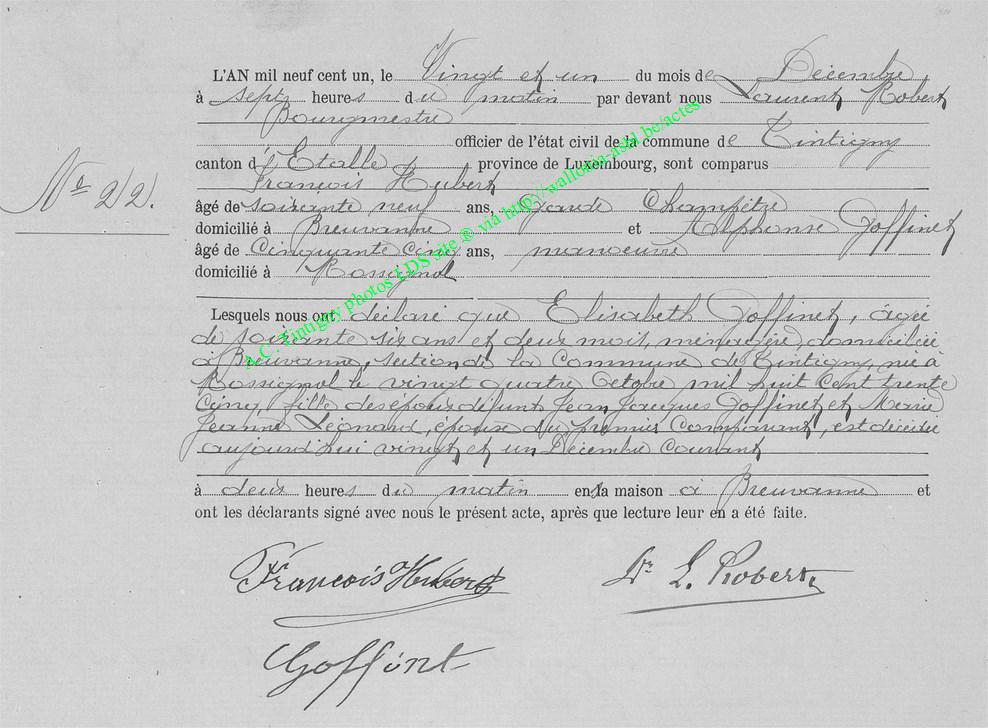 L'AN mil neuf cent un, le Vingt et un du mois de Décembre
à sept heures du matin par devant nous Laurent Robert
Bourgmestre
officier de l'état civil de la commune de Tintigny
canton d'Etalle province de Luxembourg, sont comparus
François Hubert
N° 22.
âgé de soixante neuf ans, Garde Champêtre
domicilié à Breuvanne et Alphonse Goffinet
âgé de Cinquante Cinq ans, manoeuvre
domicilié à Rossignol
Lesquels nous ont déclaré que Elisabeth Goffinet, âgée
de soixante six ans et deux mois, ménagère, domiciliée
à Breuvanne, section de la Commune de Tintigny, née à
Rossignol le vingt quatre Octobre mil huit cent trente
Cinq, fille des époux défunt Jean Jacques Goffinet et Marie
Jeanne Léonard, épouse du premier Comparant, est décédée
aujourd'hui vingt et un Décembre Courant
à deux heures du matin en sa maison à Breuvanne et
ont les déclarants signé avec nous le présent acte, après que lecture leur en a été faite.
François Hubert
Dr L. Robert
Goffint
A.C. Tintigny photos LDS site ® via http://wallonia-asbl.be/actes